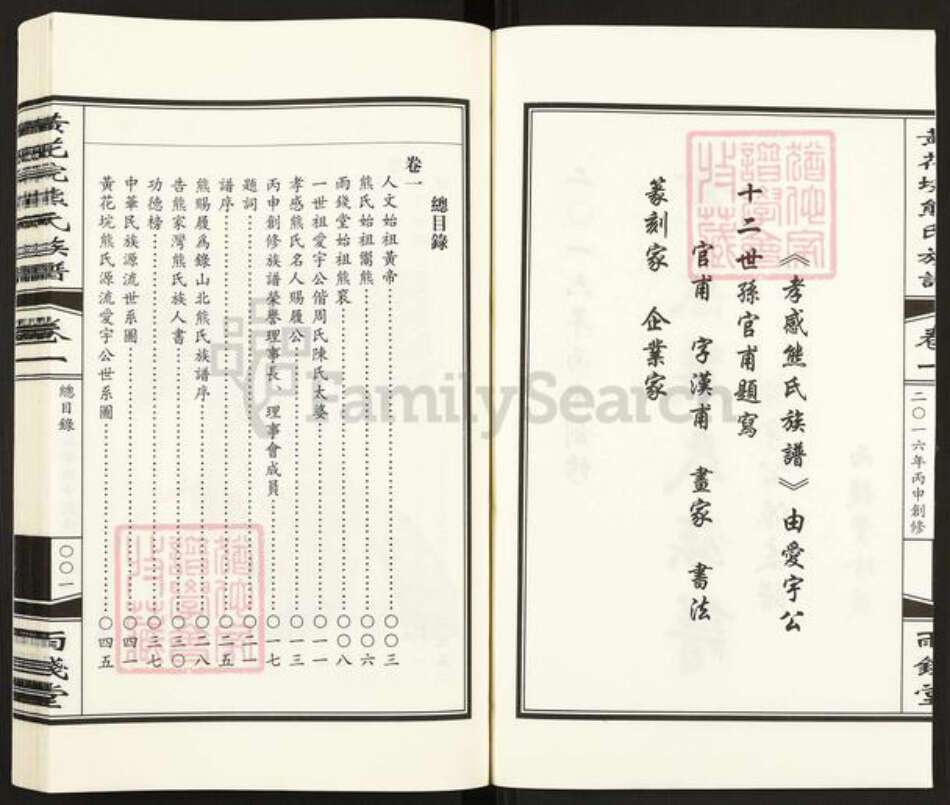 《孝感熊氏族譜》由愛宇公
十二世孫官甫題寫
官甫 字漢甫 畫家 書法
篆刻家 企業家
二〇一六年丙申創修
總目錄
卷一
人文始祖黃帝……〇〇三
熊氏始祖鬻熊……〇〇六
雨錢堂始祖熊袞……〇〇八
一世祖愛宇公偕周氏陳氏太婆……〇一一
孝感熊氏名人賜履公……〇一三
丙申創修族譜榮譽理事長 理事會成員……〇一七
題詞……〇二一
譜序……〇二五
熊賜履爲錄山北熊氏族譜序……〇二八
告熊家灣熊氏族人書……〇三〇
功德榜……〇三七
中華民族源流世系圖……〇四一
黃花垸熊氏源流愛宇公世系圖……〇四五
卷一
總目錄
〇〇一
雨錢堂
FamilySearch